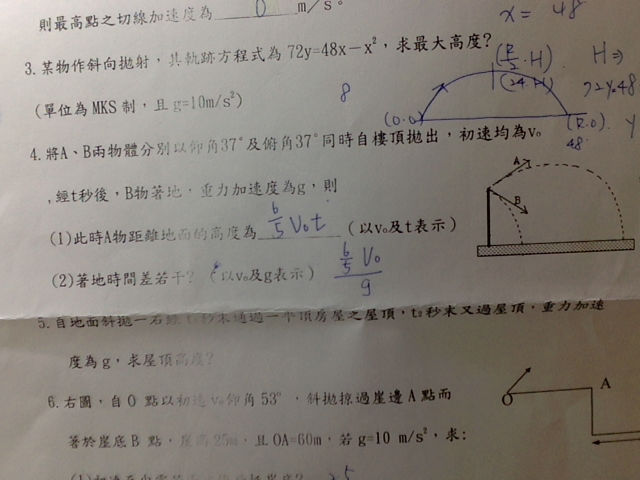 則最高點之切線加速度為 0 m/s。
x = 48
3. 某物作斜向拋射，其軌跡方程式為 72y=48x－x²，求最大高度?
(R/2, H)
H⇒
(單位為 MKS 制，且 g=10m/s²)
8
(24, H)
72y=48
(0.0)
(R.0)
48
y
4. 將A、B兩物體分別以仰角37°及俯角37°同時自樓頂拋出，初速均為v₀
，經t秒後，B物著地，重力加速度為g，則
A
B
(1)此時A物距離地面的高度為 6/5 V₀t (以v₀及t表示)
(2)著地時間差若干? (以v₀及g表示) 6/5 V₀ / g
5. 自地面斜拋一石經 t₁秒末通過一平頂房屋之屋頂，t₂秒末又過屋頂，重力加速
度為 g，求屋頂高度?
6. 右圖，自 O 點以初速 v₀仰角 53°，斜拋掠過崖邊 A 點而
O
A
著於崖底 B 點，崖高 25m，且 OA=60m，若 g=10 m/s²，求: